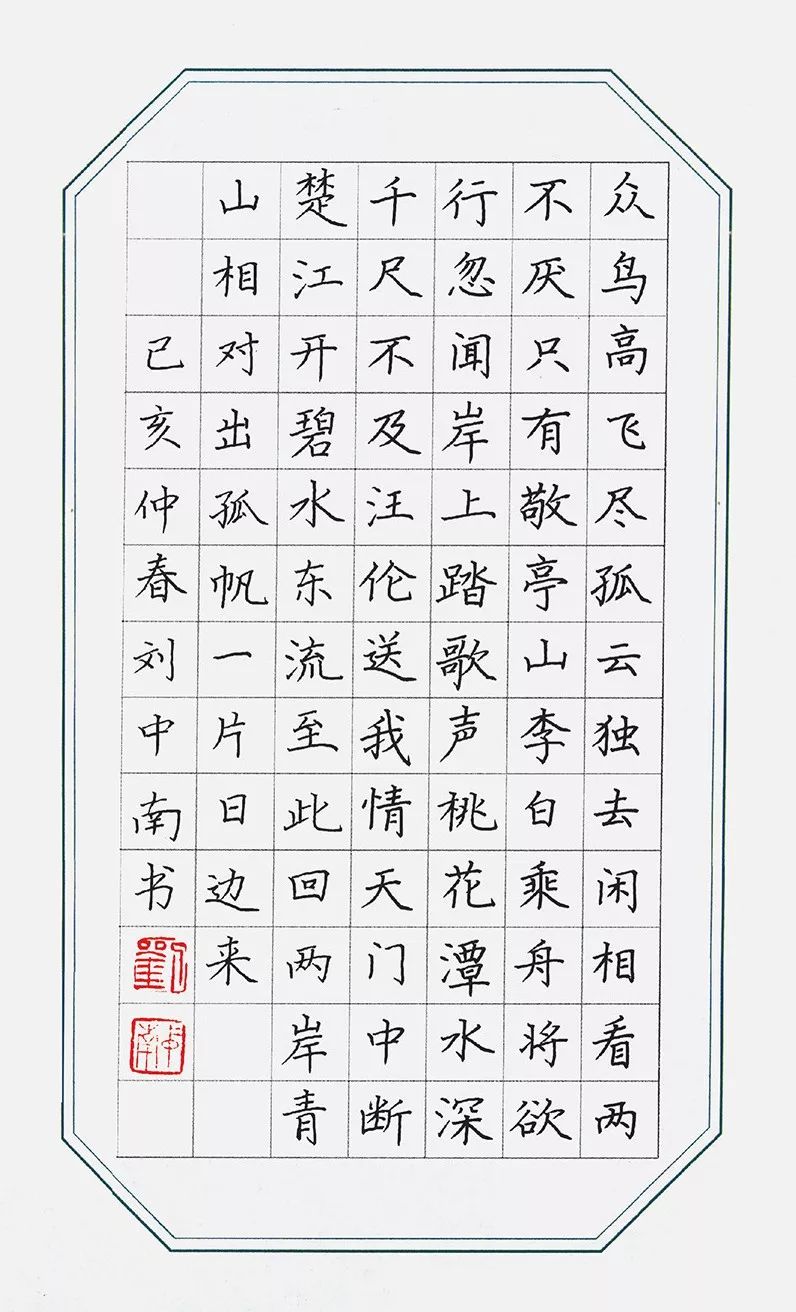 众鸟高飞尽孤云独去闲相看两
不厌只有敬亭山李白乘舟将欲
行忽闻岸上踏歌声桃花潭水深
千尺不及汪伦送我情天门中断
楚江开碧水东流至此回两岸青
山相对出孤帆一片日边来
己亥仲春刘中南书
劉
中南